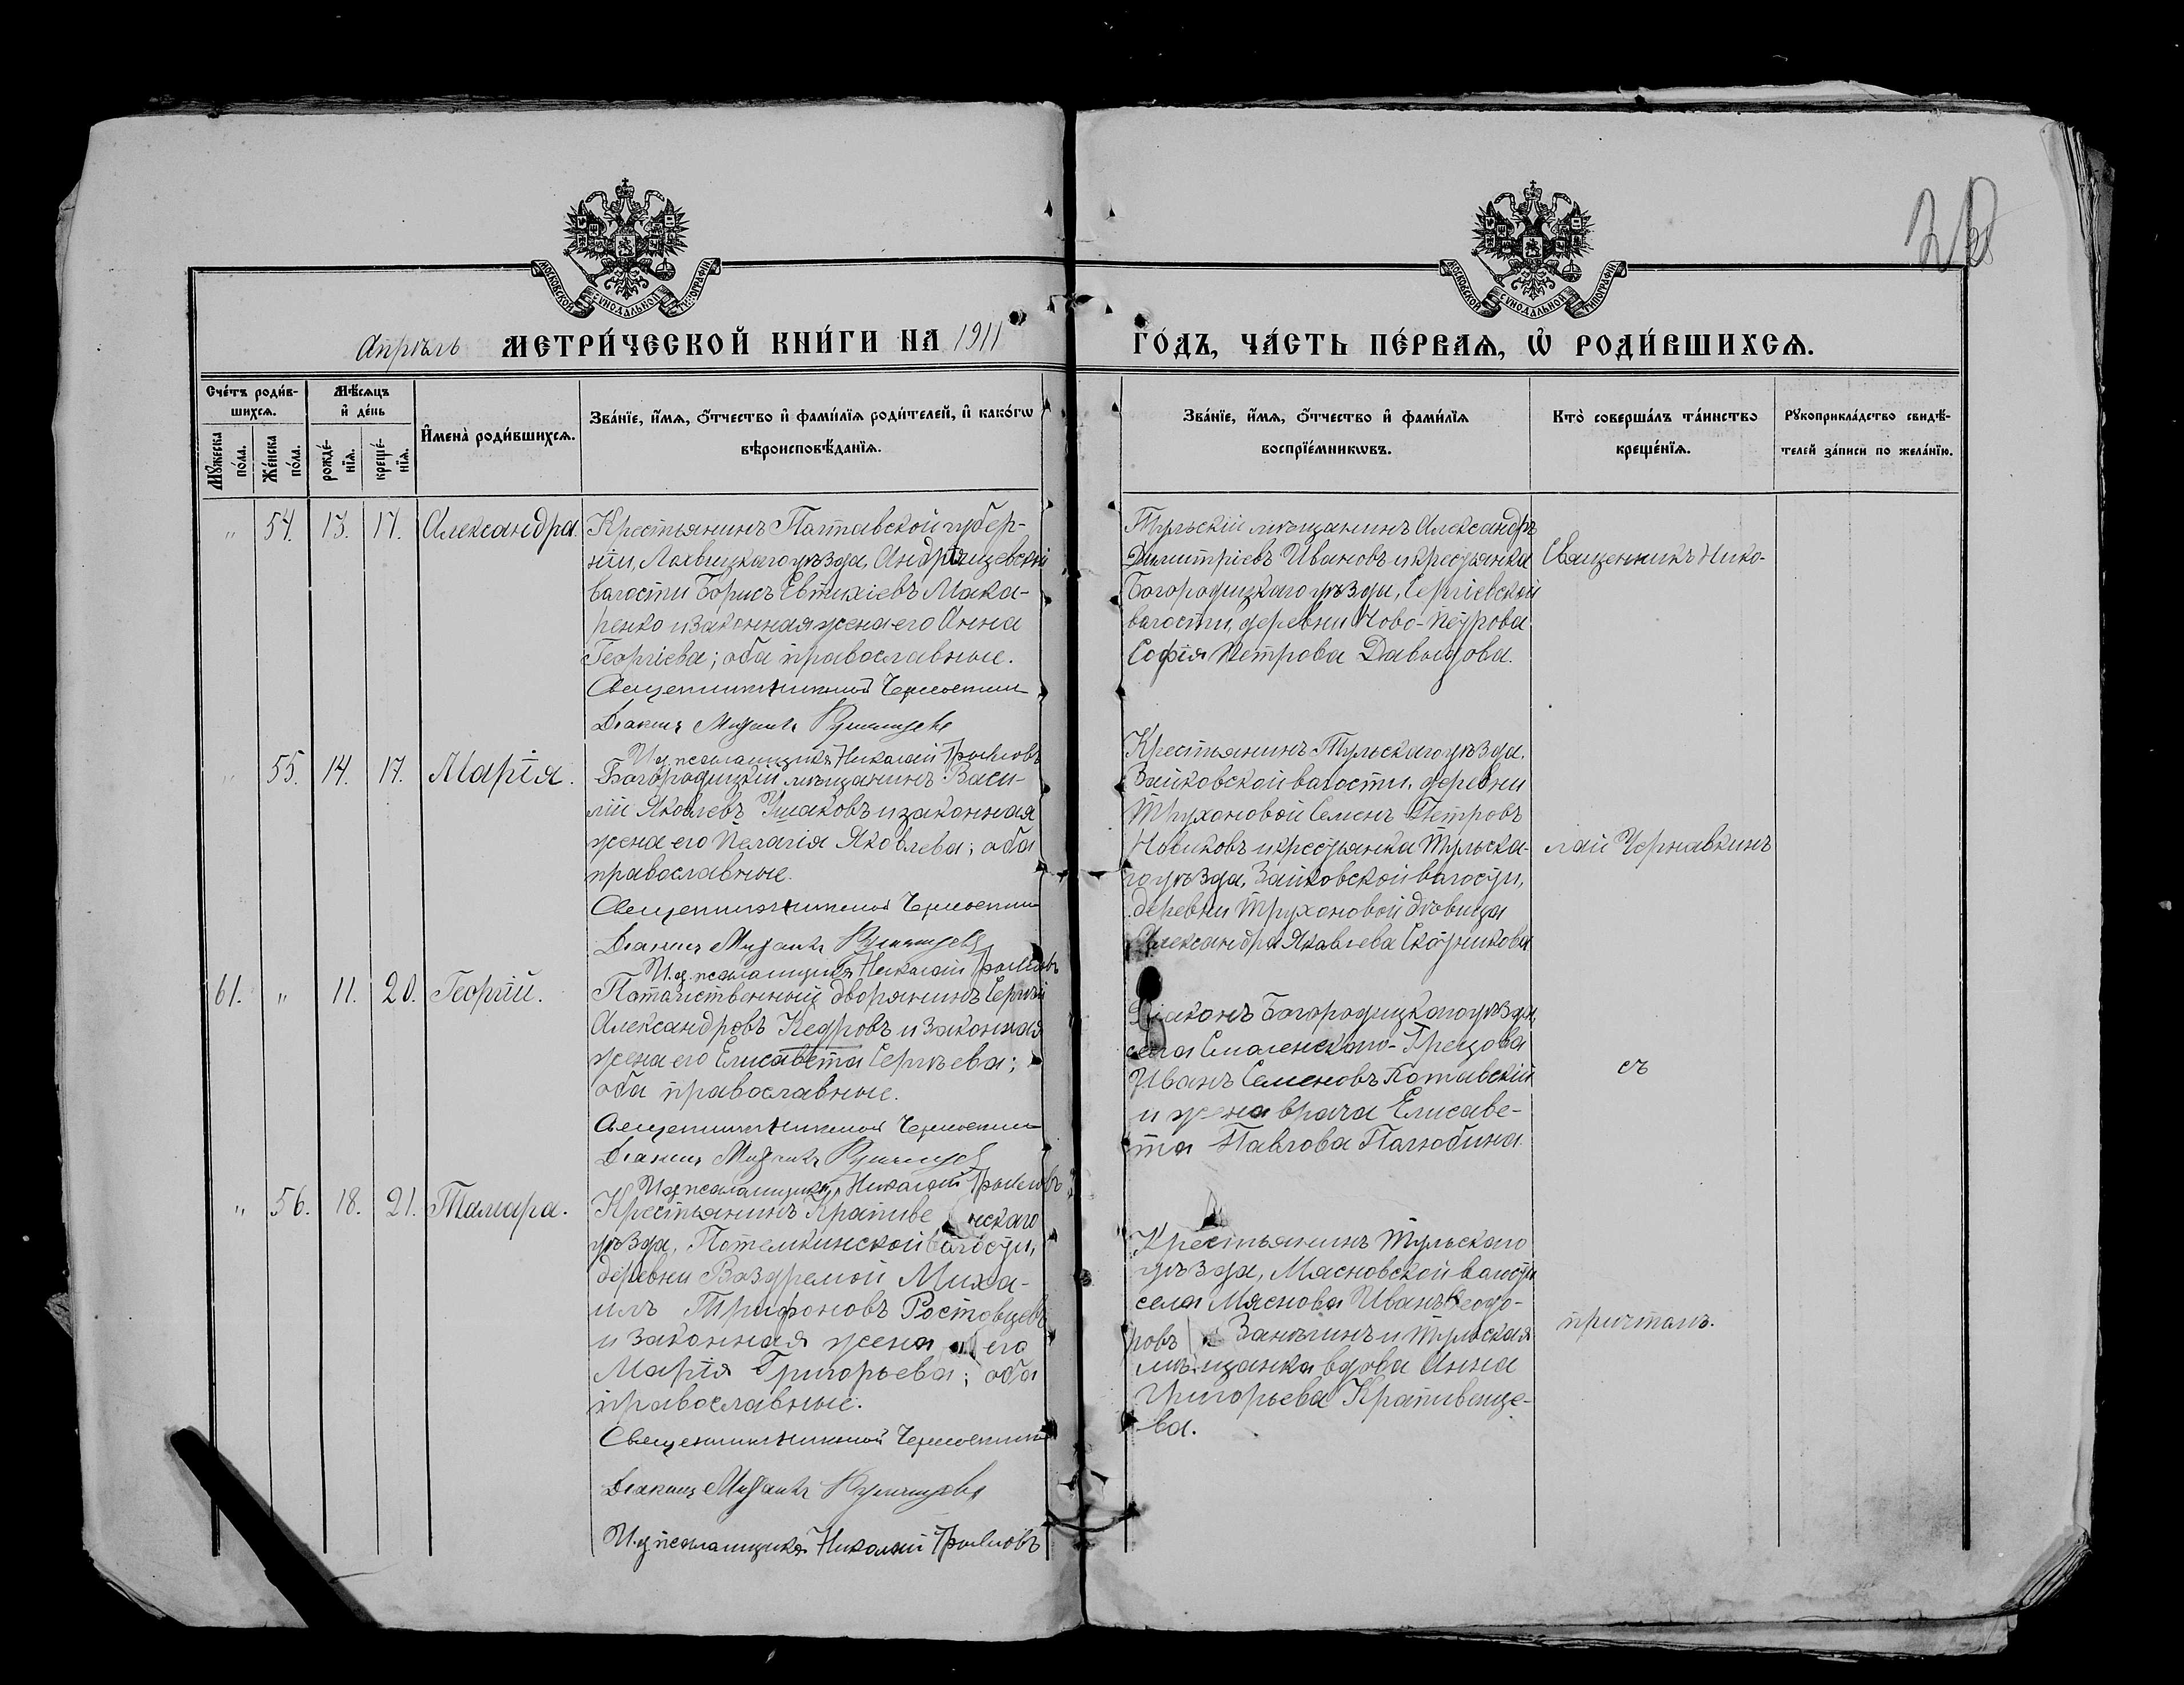 38
МОСКОВСКОЙ СУНОДАЛЬНОЙ ТИПОГРАФІИ
МОСКОВСКОЙ СУНОДАЛЬНОЙ ТИПОГРАФІИ
Апрѣль МЕТРИ́ЧЕСКОЙ КНИ́ГИ НА 1911 ГО́ДЪ, ЧА́СТЬ ПЕ́РВАѦ, Ѡ҆ РОДИ́ВШИХСѦ.
Сче́тъ роди́в-
шихсѧ.
Мꙋ́жеска по́ла.
Же́нска по́ла.
Мѣ́сѧцъ
и҆ де́нь
рожде́-
нїѧ.
креще́-
нїѧ.
И҆мена̀ роди́вшихсѧ.
Зва́нїе, и҆́мѧ, ѻ҆́тчество и҆ фами́лїѧ роди́телей, и҆ како́гѡ
вѣроисповѣ́данїѧ.
Зва́нїе, и҆́мѧ, ѻ҆́тчество и҆ фами́лїѧ
воспрїе́мникѡвъ.
Кто̀ соверша́лъ та́инство
креще́нїѧ.
Рꙋкоприкла́дство свидѣ́-
телей за́писи по жела́нїю.
" 54. 13. 17. Александра.
Крестьянинъ Полтавской губер-
ніи, Лохвицкаго уѣзда, Андріяшевской
волости Борисъ Евтихіевъ Мака-
ренко и законная жена его Анна
Георгіева; оба православные.
Священникъ Николай Чернавкинъ
Діаконъ Михаилъ
И. д. псаломщика Николай
Тульскій мѣщанинъ Александръ
Димитріевъ Ивановъ и крестьянка
Богородицкаго уѣзда, Сергіевской
волости, деревни Ново-Петрова
Софія Петрова Давыдова.
" 55. 14. 17. Марія.
Богородицкій мѣщанинъ Васи-
лій Яковлевъ Ушаковъ и законная
жена его Пелагія Яковлева; оба
православные.
Священникъ Николай Чернавкинъ
Діаконъ Михаилъ
И. д. псаломщика Николай
Крестьянинъ Тульскаго уѣзда.
Зайковской волости, деревни
Трухоновой Семенъ Петровъ
Новиковъ и крестьянка Тульска-
го уѣзда, Зайковской волости,
деревни Трухоновой дѣвица
Александра Яковлева Скорникова
61. " 11. 20. Георгій.
Потомственный дворянинъ Сергѣй
Александровъ Кедровъ и законная
жена его Елисавета Сергѣева;
оба православные.
Священникъ Николай Чернавкинъ
Діаконъ Михаилъ
И. д. псаломщика Николай
Діаконъ Богородицкаго уѣзда,
села Смоленскаго-Грецова
Иванъ Семеновъ Потавскій
и жена врача Елисаве-
та Павлова Полюбина.
" 56. 18. 21. Тамара.
Крестьянинъ Крапивенскаго
уѣзда, Потемкинской волости,
деревни Воздремой Миха-
илъ Трифоновъ Ростовцевъ
и законная жена его
Марія Григорьева; оба
православные.
Священникъ Николай Чернавкинъ
Діаконъ Михаилъ
И. д. псаломщика Николай
Крестьянинъ Тульскаго
уѣзда, Мясновской волости
села Мяснова Иванъ Ѳеодо-
ровъ Занѣгинъ и Тульская
мѣщанка вдова Анна
Григорьева Крапивенце-
ва.
Священникъ Нико-
лай Чернавкинъ
съ
причтомъ.